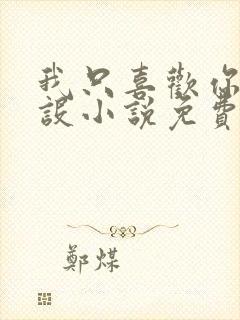 我只喜歡你
設小說免費
鄭煤